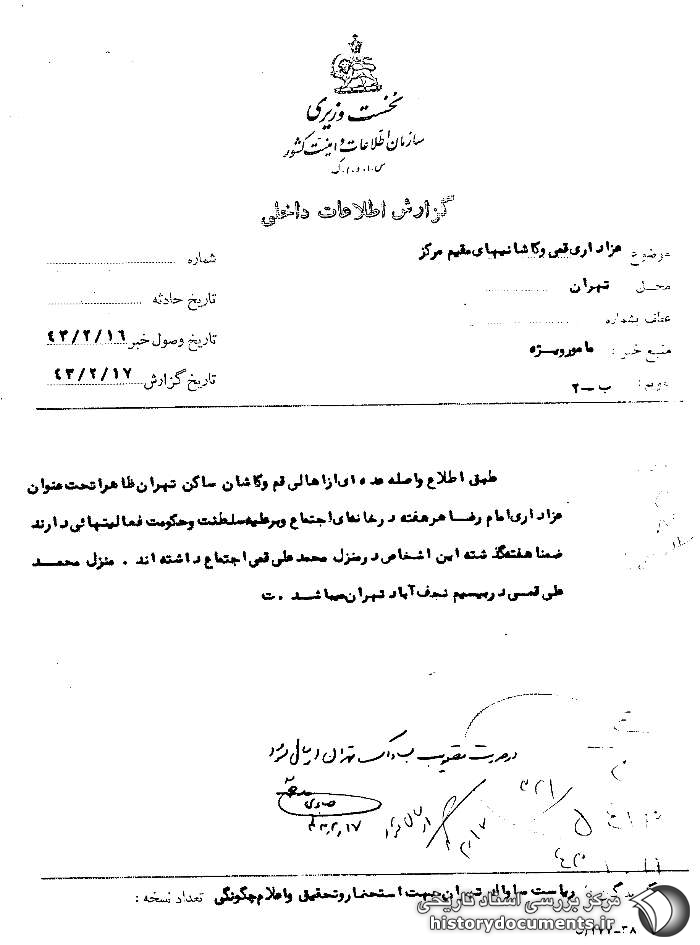 نخست وزیری
سازمان اطلاعات و امنیت کشور
س.ا.و.ا.ک
گزارش اطلاعات داخلی
موضوع عزاداری قمی وکاشانیهای مقیم مرکز
شماره
محل تهران
تاریخ حادثه
عطف بشماره
تاریخ وصول خبر ۴۳/۲/۱۶
منبع خبر : مامورویژه
تاریخ گزارش ۴۳/۲/۱۷
تقویم : ب - ۲
طبق اطلاع واصله عده ای ازاهالی قم وکاشان ساکن تهران ظاهراتحت عنوان
عزاداری امام رضا هرهفته درخانه‌ای اجتماع وبرعلیه سلطنت وحکومت فعالیتهائی دارند
ضمنا هفته گذشته این اشخاص درمنزل محمدعلی قمی اجتماع داشته اند . منزل محمد
علی قمی دربیسیم نجف آباد تهران میباشد . ت
درصورت تصویب بساواک تهران ارسال شود
صابری
۴۳,۲,۱۷
ارسال شود
۲/۱۷
۳۲۱
ریاست ساواک تهران جهت استحضار وتحقیق واعلام چگونگی تعداد نسخه :
مرکز بررسی اسناد تاریخی
historydocuments.ir